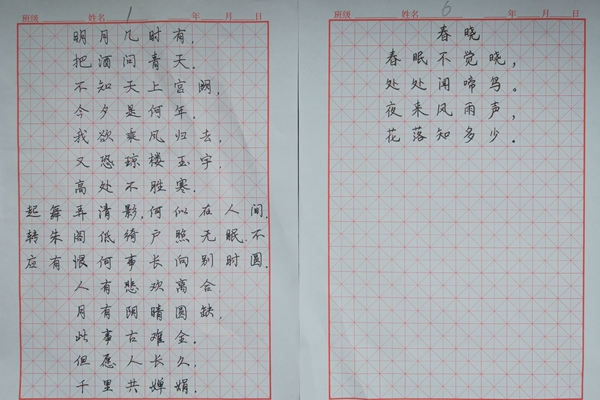 班级 姓名 1 年 月 日
明月几时有，
把酒问青天．
不知天上宫阙，
今夕是何年．
我欲乘风归去，
又恐琼楼玉宇，
高处不胜寒．
起舞弄清影，何似在人间．
转朱阁低绮户照无眠．不
应有恨何事长向别时圆．
人有悲欢离合．
月有阴晴圆缺，
此事古难全．
但愿人长久，
千里共婵娟．
班级 姓名 6 年 月 日
春晓
春眠不觉晓，
处处闻啼鸟。
夜来风雨声，
花落知多少．